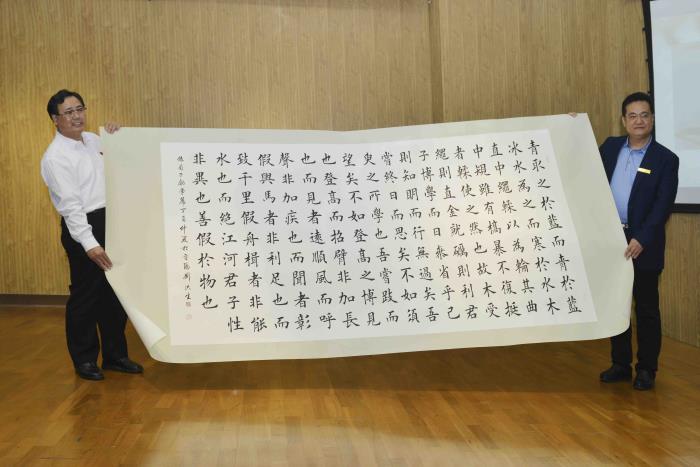 青取之於藍而青於藍
冰水為之而寒於水木
直中繩輮以為輪其曲
中規雖有槁暴不復挺
者輮使之然也故木受
繩則直金就礪則利君
子博學而日參省乎己
則知明而行無過矣吾
嘗終日而思矣不如須
臾之所學也吾嘗跂而
望矣不如登高之博見
也登高而招臂非加長
也而見者遠順風而呼
聲非加疾也而聞者彰
假輿馬者非利足也而
致千里假舟楫者非能
水也而絕江河君子性
非異也善假於物也
錄荀子勸學篇丁酉仲夏於劉洪生